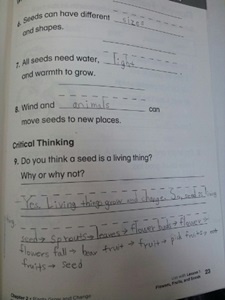 6. Seeds can have different sizes
and shapes.
7. All seeds need water, light,
and warmth to grow.
8. Wind and animals can
move seeds to new places.
Critical Thinking
9. Do you think a seed is a living thing?
Why or why not?
Yes Living things grow and change. living
seed → sprouts → leaves → flower buds → flowers →
flowers fall → bear fruit → fruit → pick fruits →
fruits → seed
Lesson 1
23